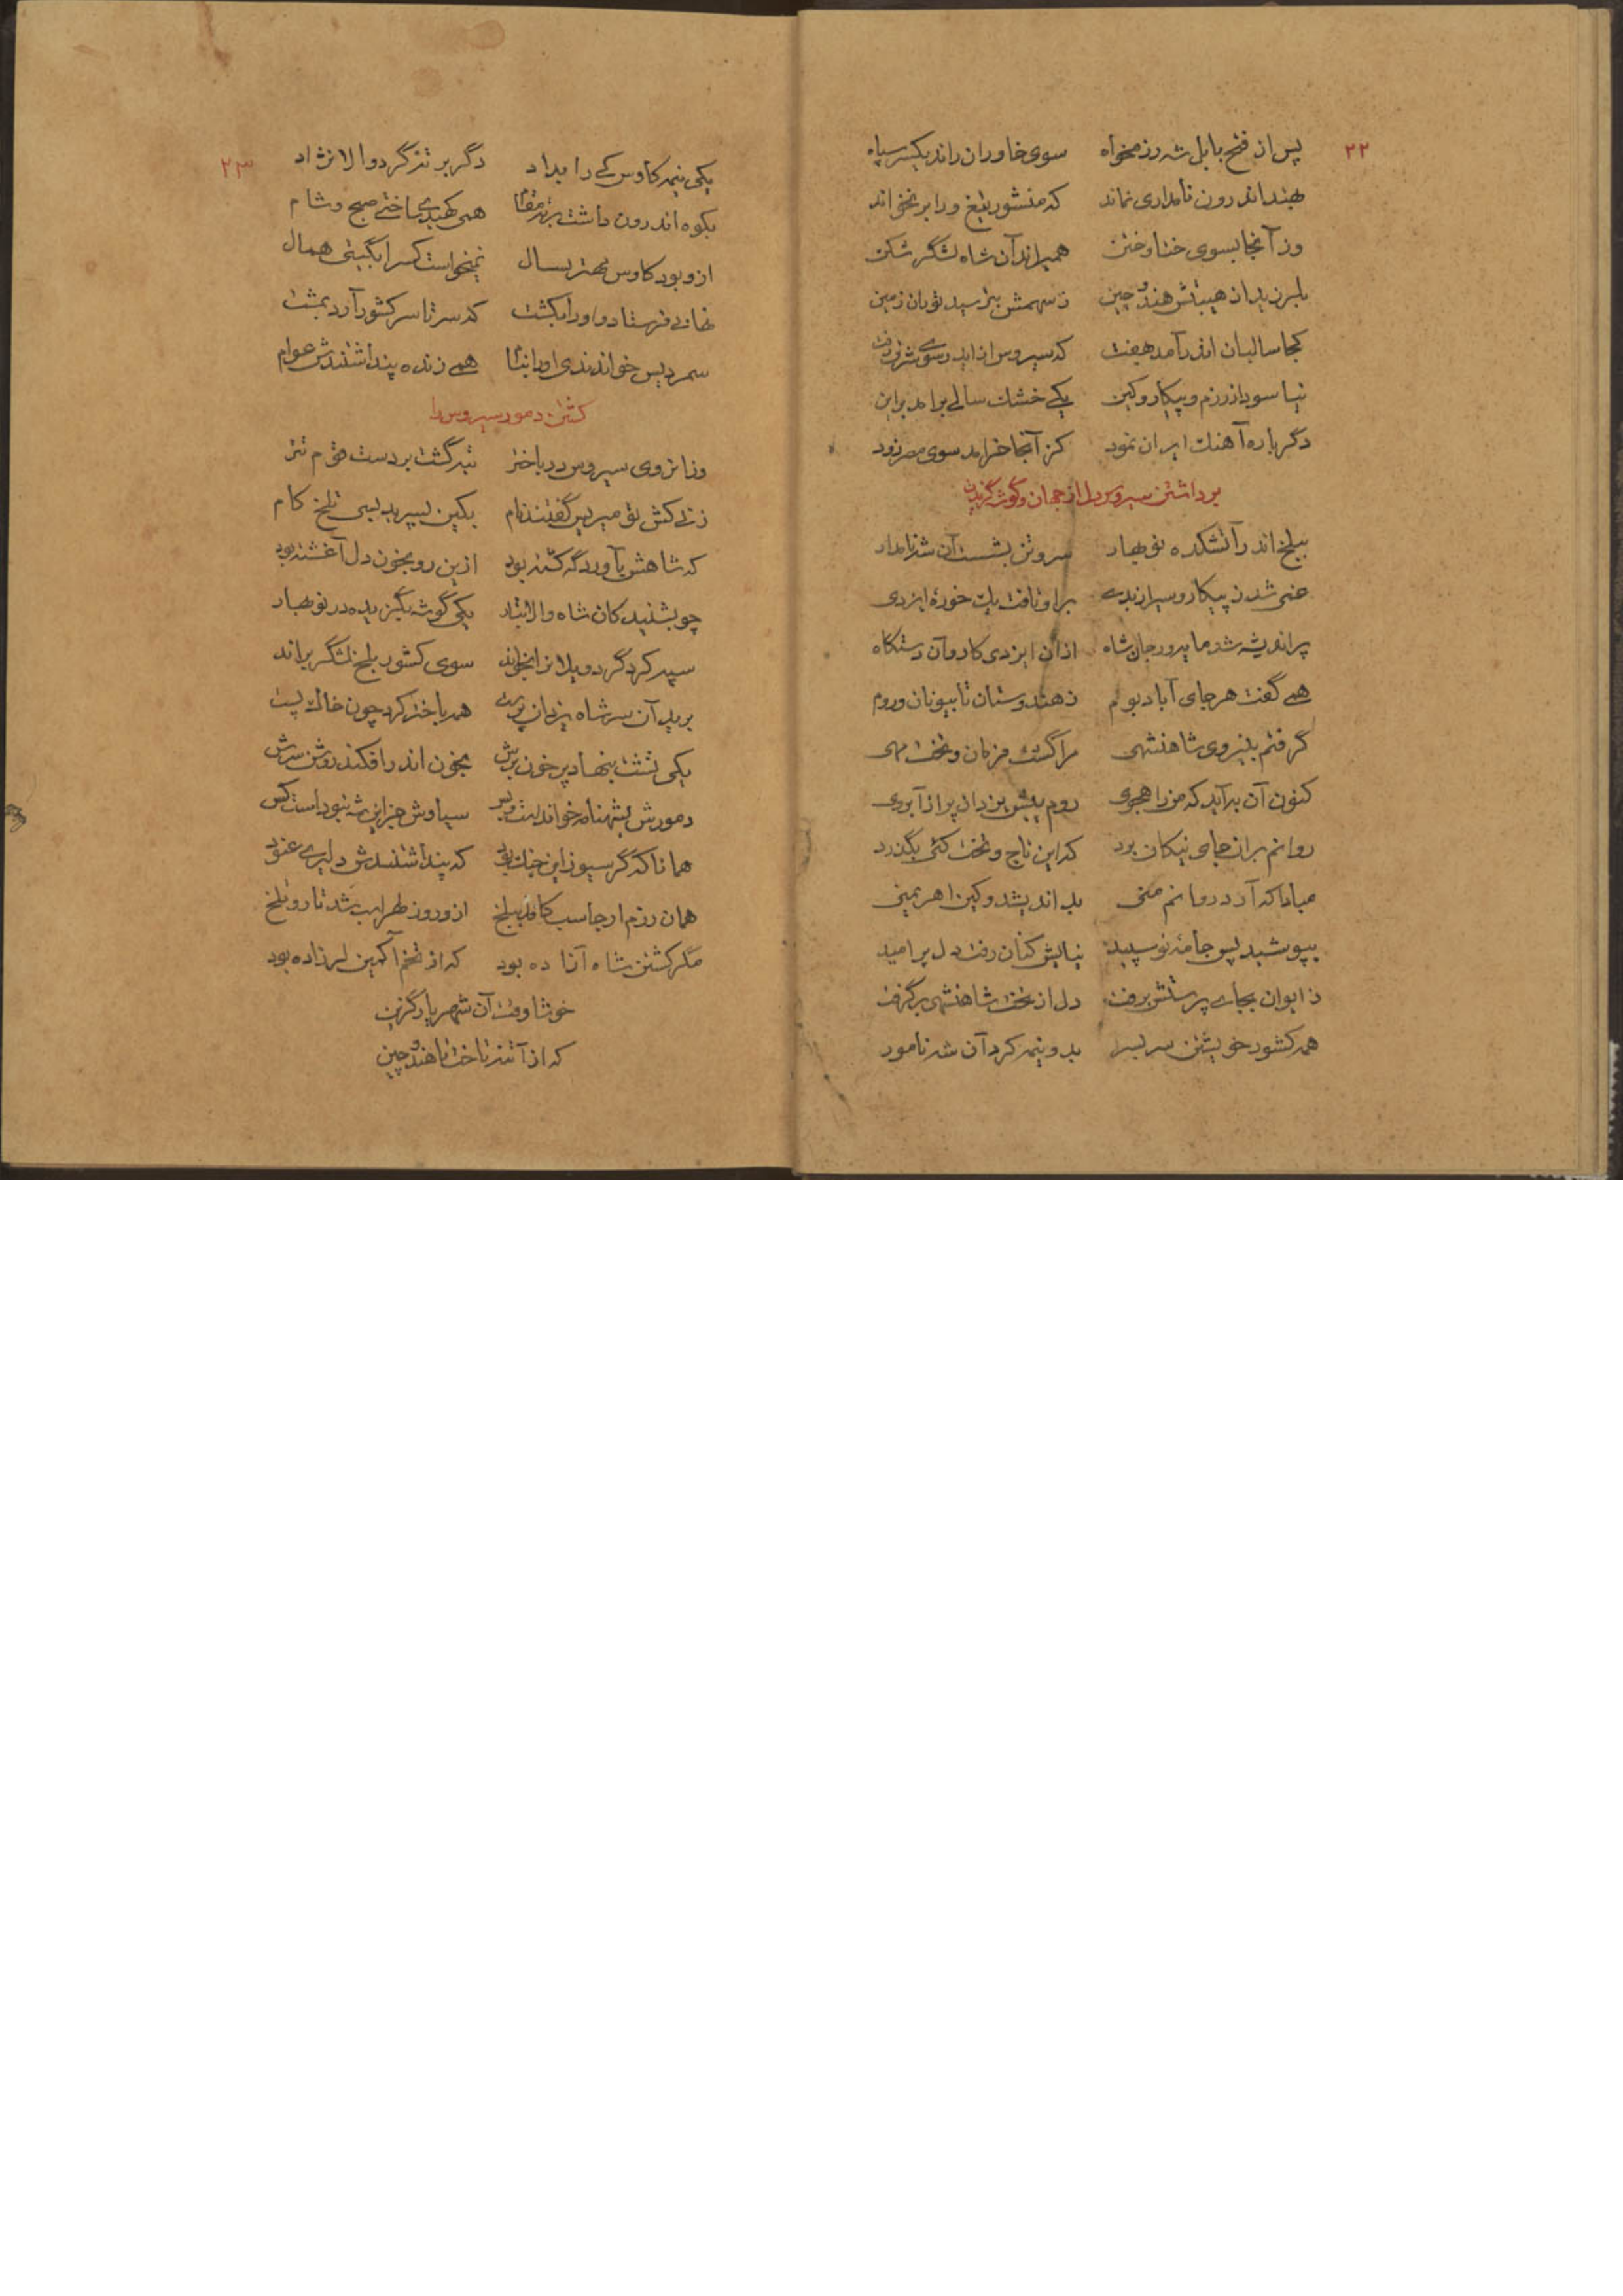 ۲۲
پس از فتح بابل شه رزمخواه سوی خاوران راند یکسر سپاه
بهند اندرون نامداری نماند که منشور تیغ ورا بر نخواند
وز آنجا بسوی ختا و ختن همیراند آن شاه لشگر شکن
بلرزید از هیبتش هند و چین ز سهمش بترسید توران زمین
کجا سالیان اندر آمد هفت که سیروس از ایدر سوی شرق رفت
نیاسود از رزم و پیکار و کین یکی خشک سالی برامد براین
دگر باره آهنگ ایران نمود کز آنجا خرامد سوی مصر زود
برداشتن سیروس دل از جهان و گوشه گزیدن
ببلخ اندر آتشکده نوبهار سر و تن بشست آن شه نامدار
غمی شد ز پیکار و سیر از بدی بر او تافت یک خوره ایزدی
پر اندیشه شد مایه ور جان شاه از آن ایزدی کار و آن دستگاه
همی گفت هر جای آباد بوم ز هندوستان تا بیونان و روم
گرفتم بنیروی شاهنشهی مرا گشت فرمان و تخت مهی
کنون آن به آید که من راهجوی روم پیش یزدان پر از آبروی
روانم بران جای نیکان برد که این تاج و تخت کئی بگذرد
مبادا که آرد روانم منی بد اندیشد و کین اهریمنی
بپوشید پس جامهٔ نو سپید نیایش کنان رفت دل پر امید
ز ایوان بجای پرستش برفت دل از تخت شاهنشهی برگرفت
همه کشور خویشتن سر بسر بدو نیمه کرد آن شه نامور
۲۳
یکی نیمه کاوس کی را بداد دگر بر تنزگرد والا نژاد
بکوه اندرون داشت برتر مقام همی گنبدی ساختی صبح و شام
ازو بود کاوس مهتر بسال نمیخواست کس را بگیتی همال
نهانی فرستاد و او را بکشت که سرتاسر کشور آرد بمشت
سمردیس خواندندی او را بنام همی زنده پنداشتندش عوام
کشتن دمور سیروس را
وزانروی سیروس در باختر تبه گشت بر دست قوم تتر
زنی کش تومیریس گفتند نام بکین پسر بد بسی تلخ کام
که شاهش بآوردگه کشته بود ازین رو بخون دل آغشته بود
چو بشنید کان شاه والا تبار یکی گوشه بگزیده در نوبهار
سپه کرد گرد و یلانرا بخواند سوی کشور بلخ لشگر براند
برید آن سر شاه یزدان پرست همه باختر کرد چون خاک پست
یکی تشت بنهاد پر خون برش بخون اندر افکند روشن سرش
دمورش بشهنامه خواندست و بس سیاوش جز این شه نبوداست کس
همانا که گرسیوز این جنگ بود که پنداشتندش دلیری عنود
همان رزم ارجاسب کامد ببلخ ازو روز لهراسب شد تار و تلخ
مگر کشتن شاه آزاده بود که از تخم آکمین لرزاده بود
خوشا وقت آن شهریار گزین
که از آتنز تاخت تا هند و چین